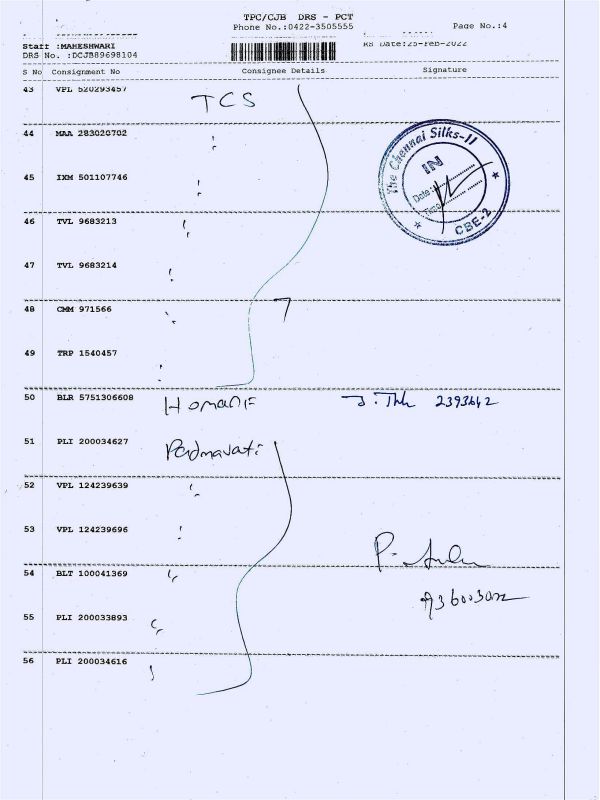 TPC/CJB DRS - PCT
Phone No.:0422-3505555
Page No.:4
Staff :MAHESHWARI
DRS No. :DCJB89698104
RS Date:25-Feb-2022
S No Consignment No Consignee Details Signature
43 VPL 520293457 TCS
44 MAA 283020702
The Chennai Silks-II
IN
Date :
CBE-2
45 IXM 501107746
46 TVL 9683213
47 TVL 9683214
48 CMM 971566 7
49 TRP 1540457
50 BLR 5751306608 2393642
51 PLI 200034627 Padmavati
52 VPL 124239639
53 VPL 124239696
54 BLT 100041369
55 PLI 200033893
56 PLI 200034616